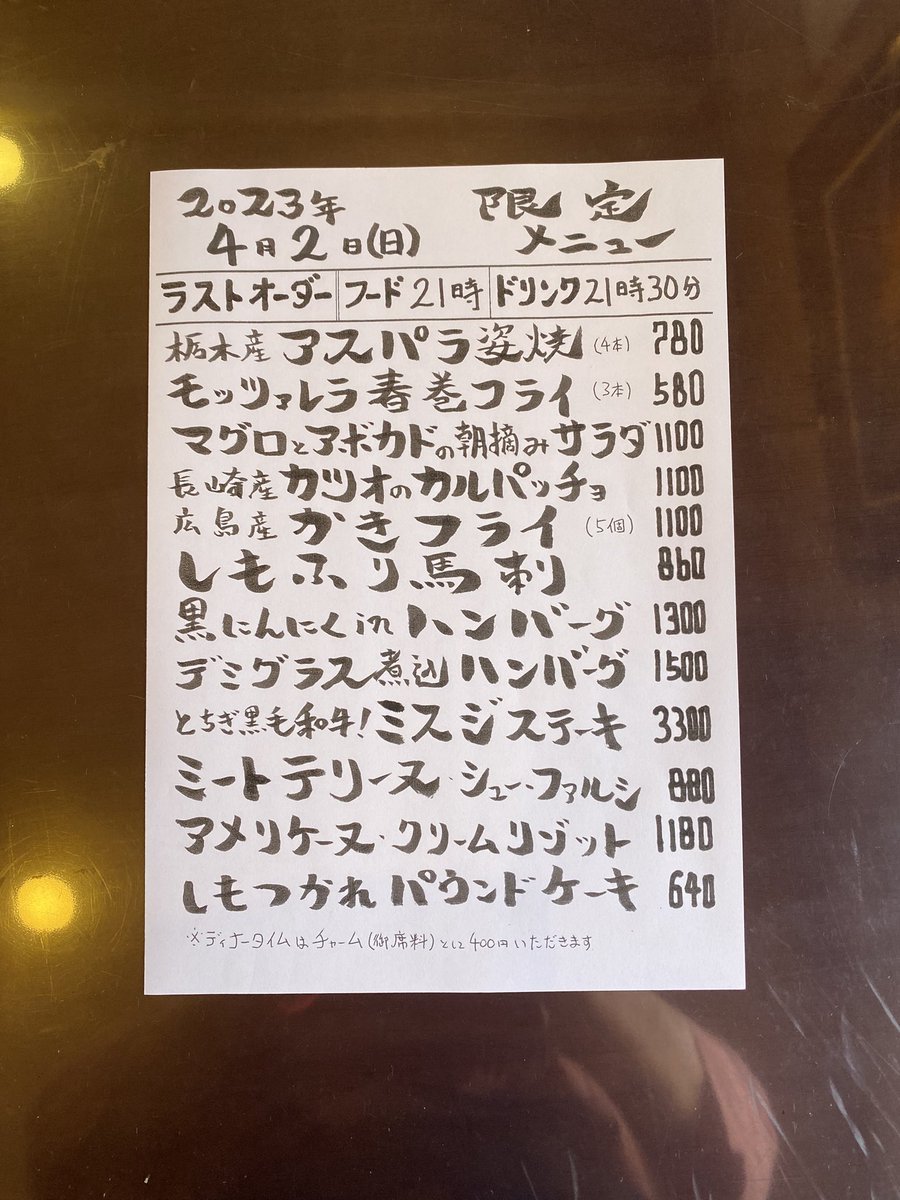 2023年 限定
4月2日(日) メニュー
ラストオーダー フード21時 ドリンク21時30分
栃木産 アスパラ姿焼 (4本) 780
モッツァレラ春巻フライ (3本) 580
マグロとアボカドの朝摘みサラダ 1100
長崎産 カツオのカルパッチョ 1100
広島産 かきフライ (5個) 1100
しもふり馬刺 860
黒にんにくinハンバーグ 1300
デミグラス煮込ハンバーグ 1500
とちぎ黒毛和牛!ミスジステーキ 3300
ミートテリーヌ・シュー・ファルシ 880
アメリケーヌ・クリームリゾット 1180
しもつかれパウンドケーキ 640
※ディナータイムはチャーム(御席料)として400円いただきます